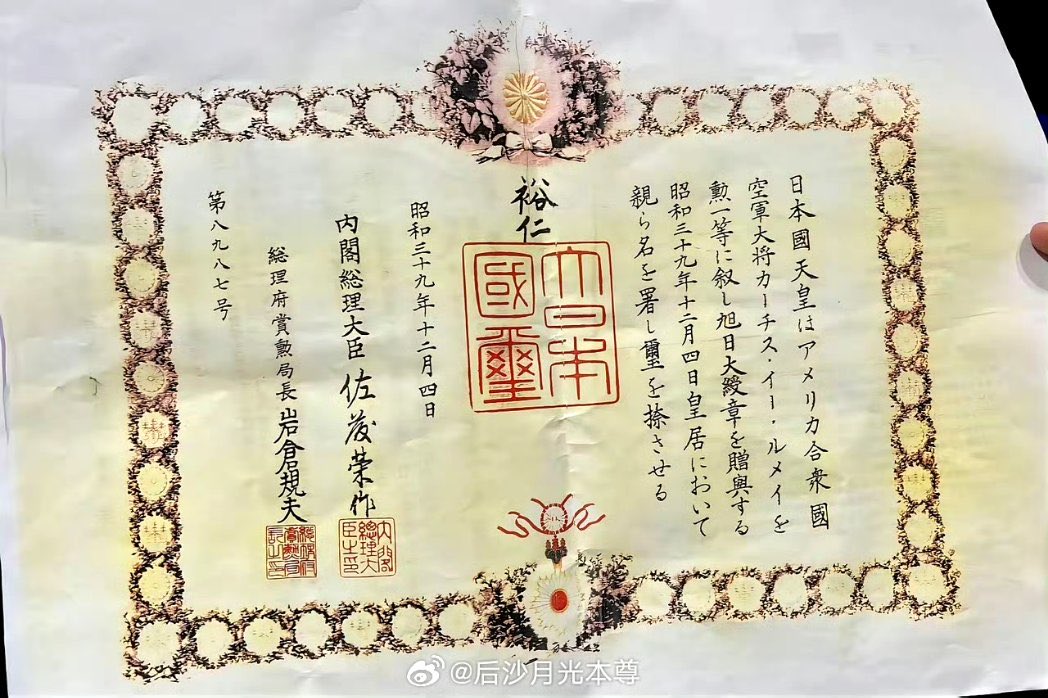 日本國天皇はアメリカ合衆國
空軍大将カーチス・イー・ルメイを
勲一等に叙し旭日大綬章を贈與する
昭和三十九年十二月四日皇居において
親ら名を署し璽を捺させる
裕仁
大日本
國璽
昭和三十九年十二月四日
内閣総理大臣 佐藤榮作
内閣総理大臣之印
総理府賞勲局長 岩倉規夫
第八九八七号
@后沙月光本尊